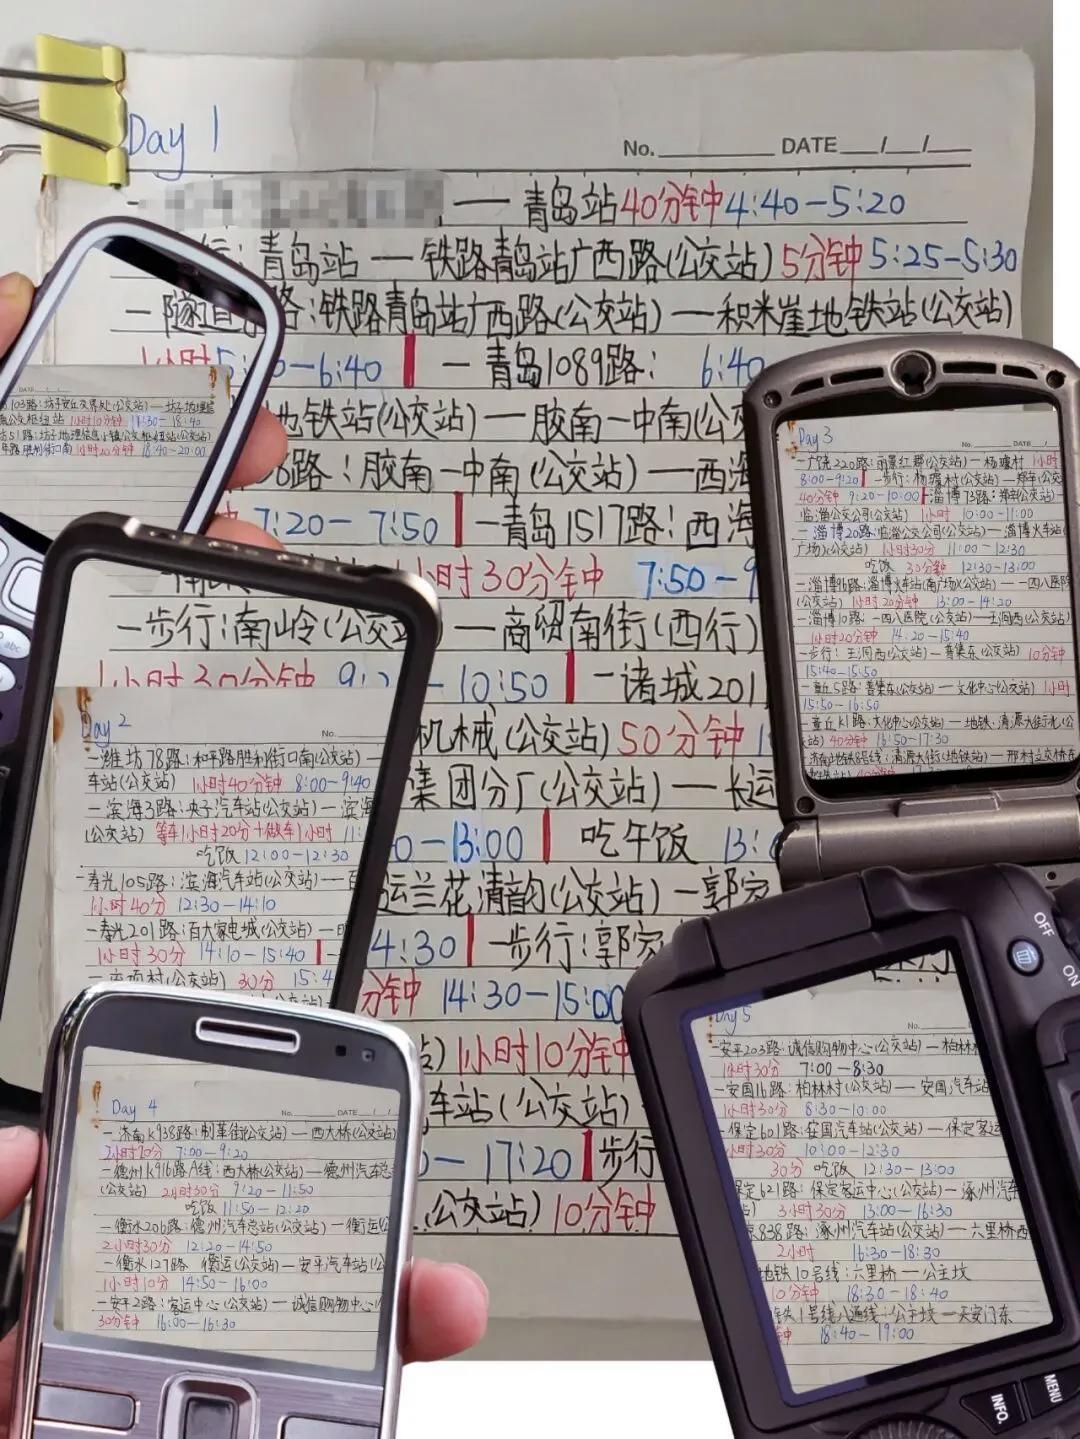 Day 1
No. DATE / /
— 青岛站 40分钟 4:40-5:20
行: 青岛站 — 铁路青岛站广西路(公交站) 5分钟 5:25-5:30
- 隧道 路:铁路青岛站广西路(公交站) — 积米崖地铁站(公交站)
1小时 5: 0-6:40 - 青岛1089路: 6:40
地铁站(公交站) — 胶南-中南(公
6路:胶南-中南(公交站) — 西海
钟 7:20-7:50 - 青岛1517路:西海
1小时30分钟 7:50-9
-步行:南岭(公交站 — 商贸南街(西行)
1小时30分钟 9:2 -10:50 - 诸城201
机械(公交站) 50分钟
集团分厂(公交站) — 长运
0-13:00 吃午饭 13:0
运兰花清韵(公交站) - 郭家
4:30 -步行:郭家
分钟 14:30-15:00
1小时10分钟
车站(公交站)
-17:20 步行
(公交站) 10分钟
DATE
103路:坊子安丘交界处(公交站) — 坊子地理信
公交枢纽站 1小时10分钟 18:40
51路:坊子地理信息小镇公交枢纽站(公交站)
路胜利街口南) 18:40-20:00
Day 2
No.
-潍坊78路:和平路胜利街口南(公交站) —
车站(公交站) 1小时40分钟 8:00-9:40
-滨海3路:央子汽车站(公交站) — 滨海
(公交站) 等车1小时20分+做车1小时 11:
吃饭 12:00-12:30
-寿光105路:滨海汽车站(公交站) — 百
1小时40分 12:30-14:10
-寿光201路:百大家电城(公交站) —
1小时30分 14:10-15:40
村(公交站) 30分 15:4
Day 3
No. DATE / /
-广饶220路:丽景红郡(公交站) — 杨瓘村 1小时
8:00-9:20 -步行:杨瓘村(公交站) — 郑辛(公交
40分钟 9:20-10:00 淄博73路:郑辛(公交站)-
临淄公交公司(公交站) 1小时 10:00-11:00
-淄博20路:临淄公交公司(公交站) — 淄博火车站(
广场)(公交站) 1小时30分 11:00-12:30
吃饭 30分钟 12:30-13:00
-淄博 路:淄博火车站(南广场)(公交站) — 一四八医院
(公交站) 1小时20分钟 13:00-14:20
-淄博10路:一四八医院(公交站) — 王洞西(公交站)
1小时20分钟 14:20-15:40
-步行:王洞西(公交站) — 普集东(公交站) 10分钟
15:40-15:50
-章丘5路:普集东(公交站) — 文化中心(公交站) 1小时
15:50-16:50
-章丘K1路:文化中心(公交站) — 地铁:清源大街 (公
交站) 40分钟 16:50-17:30
-济南地铁8号线:清源大街(地铁站) — 邢村立交桥东
40分钟
Day 4
No. DATE / /
-济南K938路:制革街(公交站) — 西大桥(公交站)
2小时20分 7:00-9:20
-德州K916路A线:西大桥(公交站) — 德州汽车总
(公交站) 2小时30分 9:20-11:50
吃饭 11:50-12:20
-衡水206路:德州汽车总站(公交站) — 衡运(公
2小时30分 12:20-14:50
-衡水127路 衡运(公交站) — 安平汽车站(公
1小时10分 14:50-16:00
-安平2路:客运中心(公交站) — 诚信购物中心
30分钟 16:00-16:30
Day 5
No.
-安平203路:诚信购物中心(公交站) — 柏林村
1小时30分 7:00-8:30
-安国16路:柏林村(公交站) — 安国汽车站
1小时30分 8:30-10:00
-保定601路:安国汽车站(公交站) — 保定客运
小时30分 10:00-12:30
30分 吃饭 12:30-13:00
保定621路:保定客运中心(公交站) — 涿州汽车
3小时30分 13:00-16:30
京838路:涿州汽车站(公交站) — 六里桥西
2小时 16:30-18:30
地铁10号线:六里桥 — 公主坟
10分钟 18:30-18:40
铁1号线八通线:公主坟 — 天安门东
钟 18:40-19:00
abc
OFF
ON
INFO.
MENU